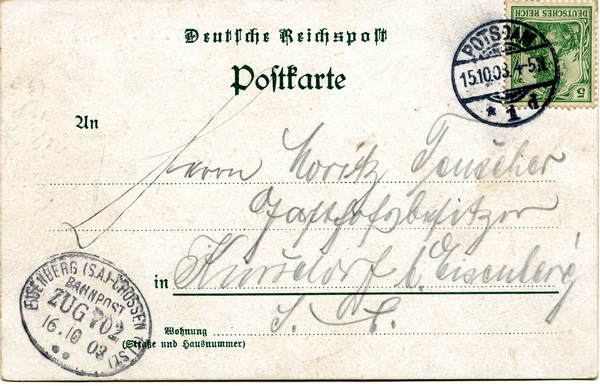 Deutsche Reichspost
Postkarte
DEUTSCHES REICH
5
POTSDAM
15.10.03. 4-5N.
* 1 d
An
Herrn Moritz Teuscher
Gasthofsbesitzer
in Kursdorf b. Eisenberg
S. A.
Wohnung
(Straße und Hausnummer)
EISENBERG (S.A.)-CROSSEN (ELST)
BAHNPOST
ZUG 702
16.10 03